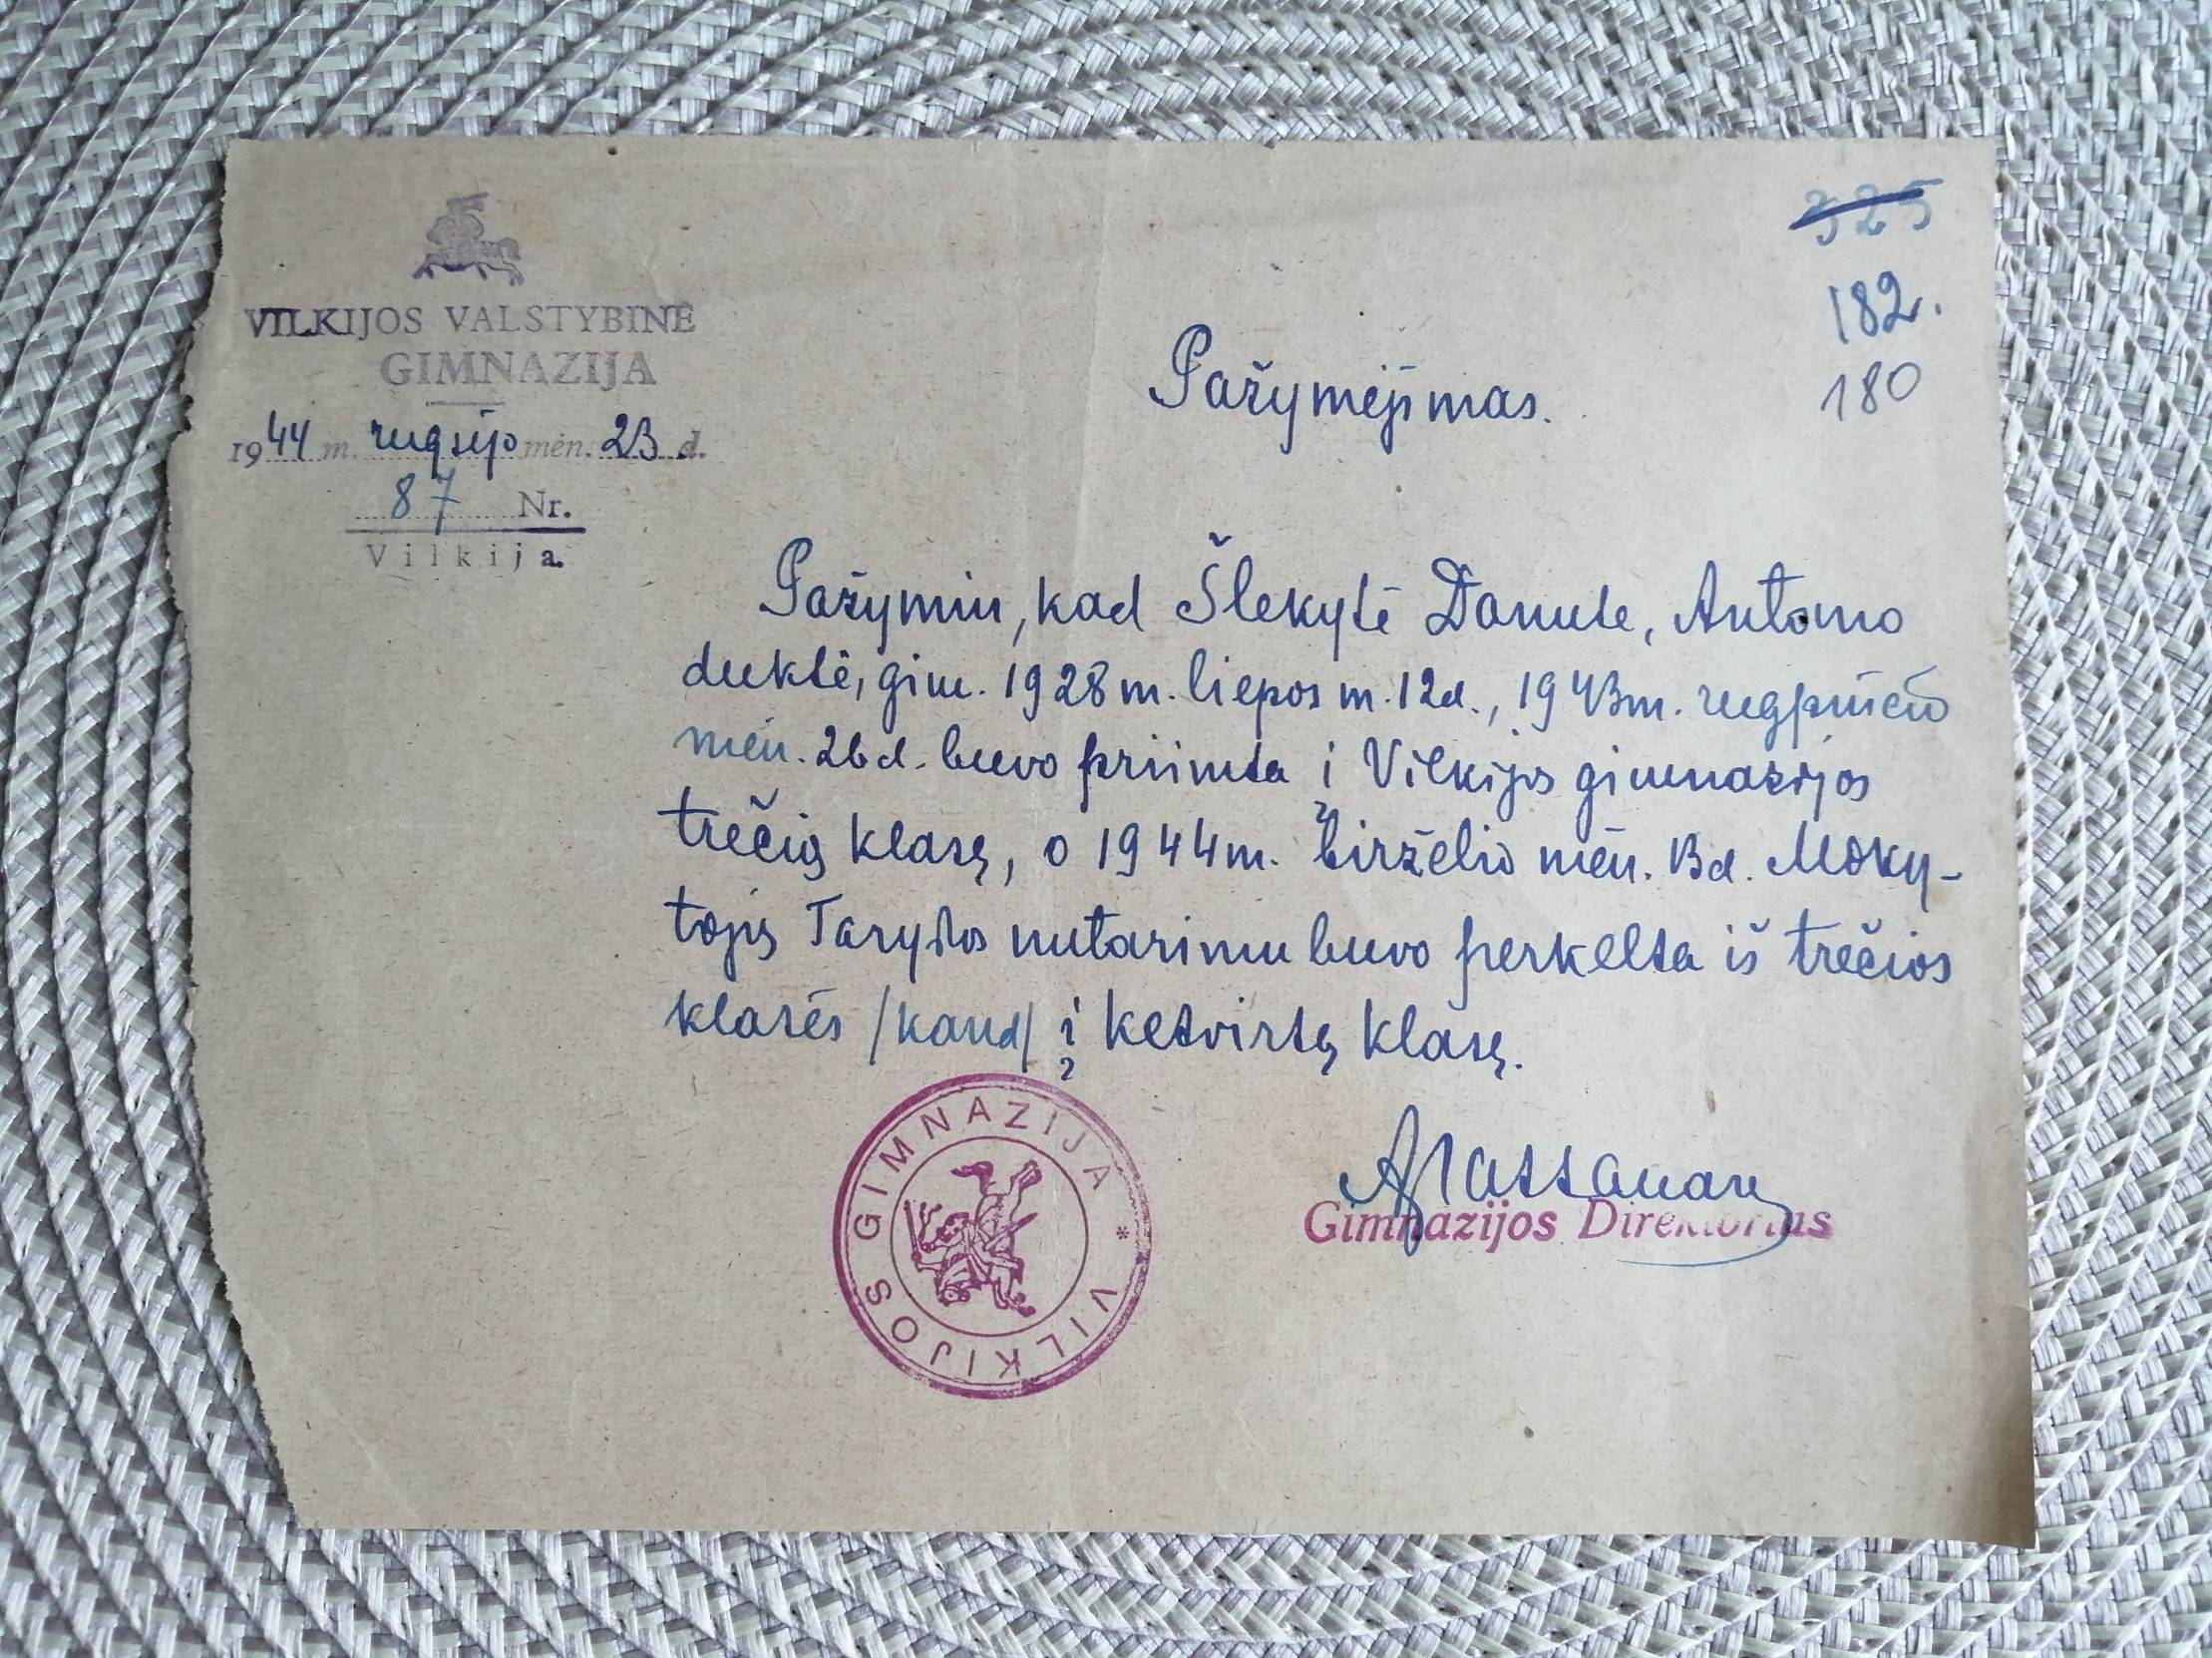 325
182.
180
VILKIJOS VALSTYBINĖ
GIMNAZIJA
1944 m. rugsėjo mėn. 23 d.
87 Nr.
Vilkija.
Pažymėjimas.
Pažymiu, kad Šlekytė Danutė, Antano
duktė, gim. 1928 m. liepos m. 12 d., 1943 m. rugpiučio
mėn. 26 d. buvo priimta į Vilkijos gimnazijos
trečią klasę, o 1944 m. birželio mėn. 13 d. Moky-
tojų Tarybos nutarimu buvo perkelta iš trečios
klasės /kand/ į ketvirtą klasę.
Gimnazijos Direktorius
VILKIJOS GIMNAZIJA *